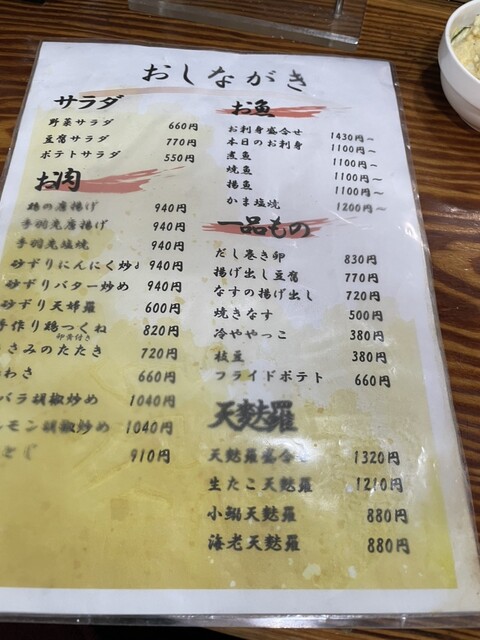 おしながき
サラダ
野菜サラダ 660円
豆腐サラダ 770円
ポテトサラダ 550円
お肉
鶏の唐揚げ 940円
手羽先唐揚げ 940円
手羽先塩焼 940円
砂ずりにんにく炒め 940円
砂ずりバター炒め 940円
砂ずり天婦羅 600円
手作り鶏つくね 820円
卵黄付き
さみのたたき 720円
わさ 660円
バラ胡椒炒め 1040円
ルモン胡椒炒め 1040円
910円
お魚
お刺身盛合せ 1430円～
本日のお刺身 1100円～
煮魚 1100円～
焼魚 1100円～
揚魚 1100円～
かま塩焼 1200円～
一品もの
だし巻き卵 830円
揚げ出し豆腐 770円
なすの揚げ出し 720円
焼きなす 500円
冷ややっこ 380円
枝豆 380円
フライドポテト 660円
天麩羅
天麩羅盛合せ 1320円
生たこ天麩羅 1210円
小鰯天麩羅 880円
海老天麩羅 880円